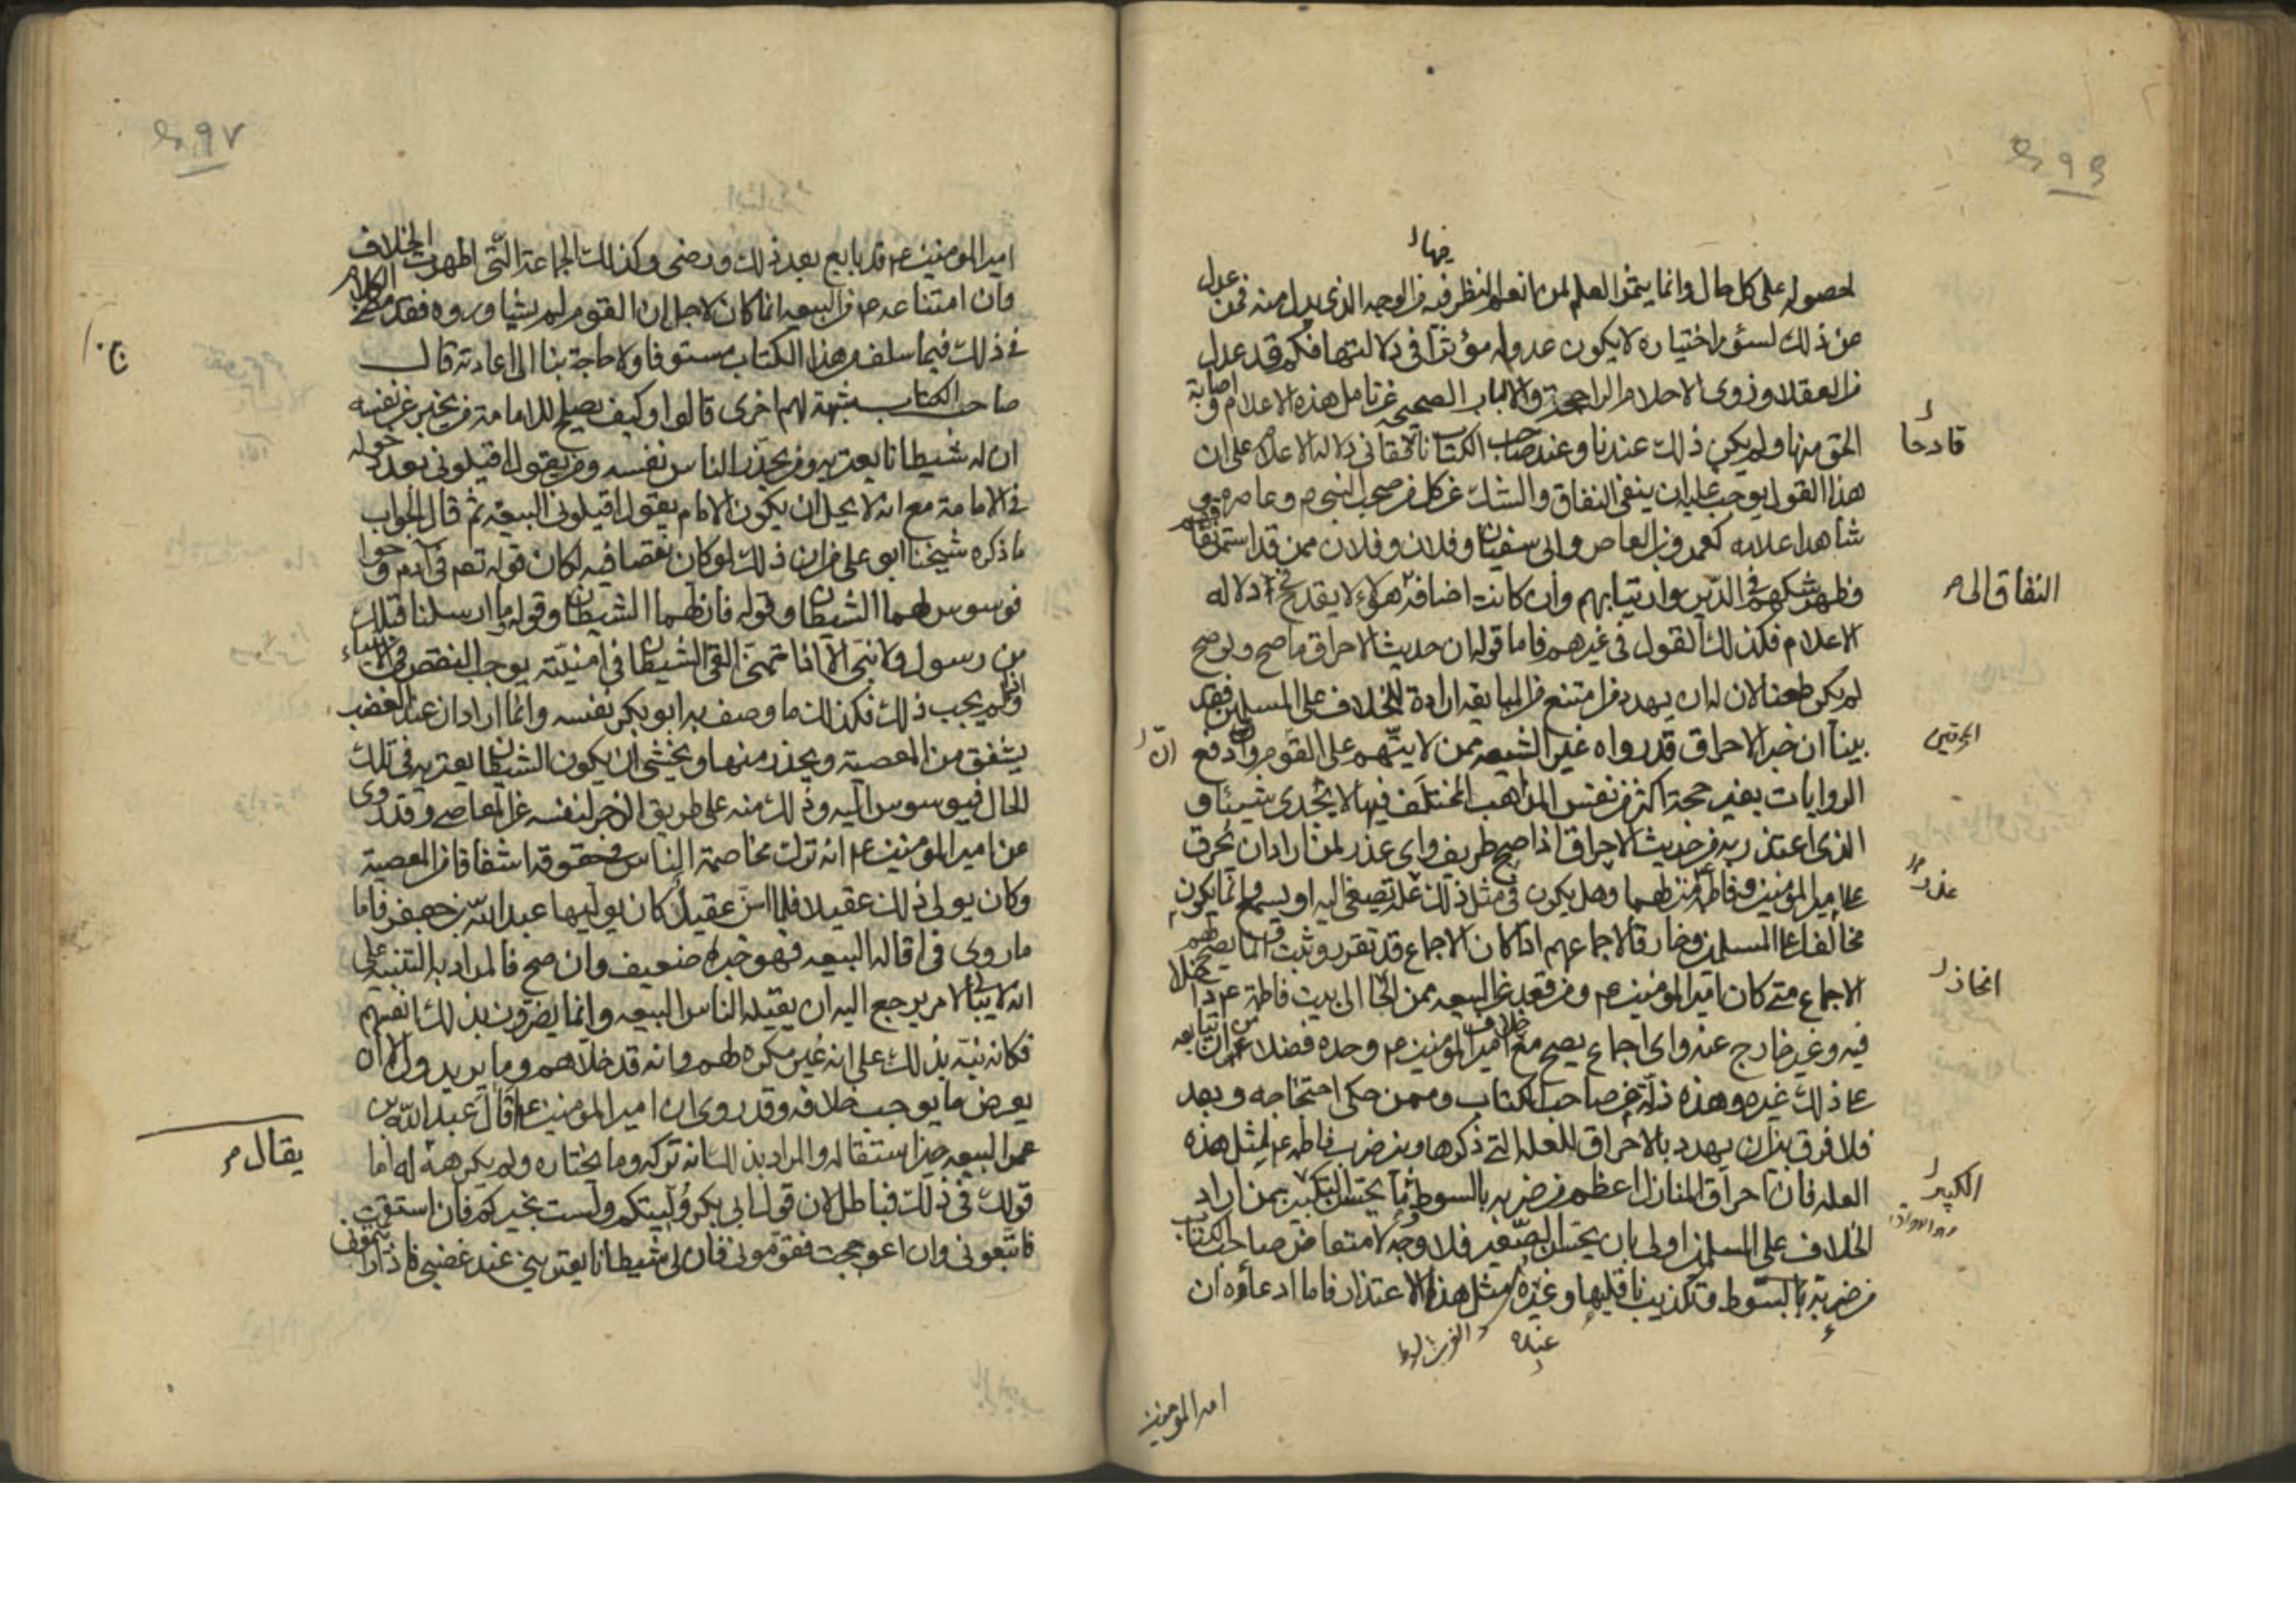 فيها
لحصوله على كل حال وانما يثمر العلم لمن انعم النظر فيه من الوجه الذي يدل منه فمن عدل
عن ذلك لسوء اختياره لا يكون عدوله مؤثرا في دلالتها فكم قد عدل
من العقلاء وذوى الاحلام الراجحة والالباب الصحيحة عن تامل هذه الاعلام واصابة
الحق منها ولم يكن ذلك عندنا وعند صاحب الكتاب في دلاله الاعلام على ان
قادحا
هذا القول يوجب عليه ان ينفى النفاق والشك عن كل من صحب النبى وعاصره و
شاهد اعلامه كعمرو بن العاص وابى سفيان وفلان وفلان ممن قد اشتهر نفاقهم
وظهر شكهم في الدين وارتيابهم وان كانت اضافة هؤلاء لا يقدح في دلاله
النفاق الى
الاعلام فكذلك القول في غيرهم فاما قوله ان حديث الاحراق ما صح ولو صح
لم يكن طعنا لان له ان يهدد من امتنع من المبايعه ارادة للخلاف على المسلمين فقد
بينا ان خبر الاحراق قد رواه غير الشيعه ممن لا يتهم على القوم وان دفع
ان
الروايات بغير حجة اكثر من نفس المذاهب المختلف فيها لا يجدى شيئا و
الذى اعتذر به من حديث الاحراق اذا صح طريف واى عذر لمن اراد ان يحرق
على امير المؤمنين وفاطمه منزلهما وهل يكون في مثل ذلك عله تصغى اليه او يسمع وانما يكون
عذر
مخالفا على المسلمين وخارقا لاجماعهم اذا كان الاجماع قد تقرر وثبت وانما يصح لهم
الاجماع متى كان امير المؤمنين ومن قعد عن البيعه ممن الى بيت فاطمة داخلا
انحاز
فيه وغير خارج عنه واى اجماع يصح مع خلاف امير المؤمنين وحده فضلا عن ان تبايعه
على ذلك غيره وهذه زلة من صاحب الكتاب وممن حكى احتجاجه وبعد
فلا فرق بين ان يهدد بالاحراق للعله التى ذكرها وبين ضرب فاطمه لمثل هذه
العله فان احراق المنازل اعظم من ضربه بالسوط بمن اراد
الكبير
الخلاف على المسلمين اولى بان يحسن الصغير فلا وجه لامتعاض صاحب الكتاب
من ضربة بالسوط وتكذيب ناقلها وعنده مثل هذا الاعتذار فاما ادعاؤه ان
عنده
امير المؤمنين
امير المؤمنين قد بايع بعد ذلك ورضى وكذلك الجماعة التى اظهرت الخلاف
وان امتناعه من البيعه انما كان لاجل ان القوم لم يشاوروه فقد مضى الكلام
في ذلك فيما سلف من هذا الكتاب مستوفا ولا حاجة بنا الى اعادته قال
صاحب الكتاب شبهة لهم اخرى قالوا وكيف يصلح للامامة من يخبر عن نفسه
ان له شيطانا يعتريه ومن يحذر الناس نفسه ومن يقول اقيلونى بعد دخوله
في الامامة مع انه لا يحل ان يكون الامام يقول اقيلونى البيعه ثم قال الجواب
ما ذكره شيخنا ابو على من ان ذلك لو كان نقصا فيه لكان قوله تعم في آدم وحوا
فوسوس لهما الشيطان وقوله فازلهما الشيطان وقوله وما ارسلنا قبلك
من رسول ولا نبى الا اذا تمنى القى الشيطان في امنيته يوجب النقص في الانبياء
واذا لم يجب ذلك فكذلك ما وصف به ابو بكر نفسه وانما اراد ان عند الغضب
يشفق من المعصية ويحذر منها ويخشى ان يكون الشيطان يعتريه في تلك
الحال فيوسوس اليه وذلك منه على طريق الزجر لنفسه عن المعاصى وقد روى
عن امير المؤمنين انه ترك مخاصمة الناس في حقوقه اشفاقا من المعصية
وكان يولى ذلك عقيلا فلما اسن عقيل كان يوليها عبد الله بن جعفر فاما
ما روى في اقالة البيعه فهو خبر ضعيف وان صح فالمراد به التنبيه على
انه لا يبالى لامر يرجع اليه ان يقيله الناس البيعه وانما يضرون بذلك انفسهم
فكانه نبه بذلك على انه غير مكره لهم وانه قد خلاهم وما يريدون الا ان
يعرض ما يوجب خلافه وقد روى ان امير المؤمنين اقال عبد الله بن
عمر البيعه حين استقاله والمراد بذلك انه تركه وما يختاره ولم يكرهه له اما
يقال
قولك في ذلك فباطل لان قول ابى بكر وليتكم ولست بخيركم فان استقمت
فاتبعونى وان اعوججت فقومونى فان لى شيطانا يعترينى عند غضبى فاذا رايتمونى